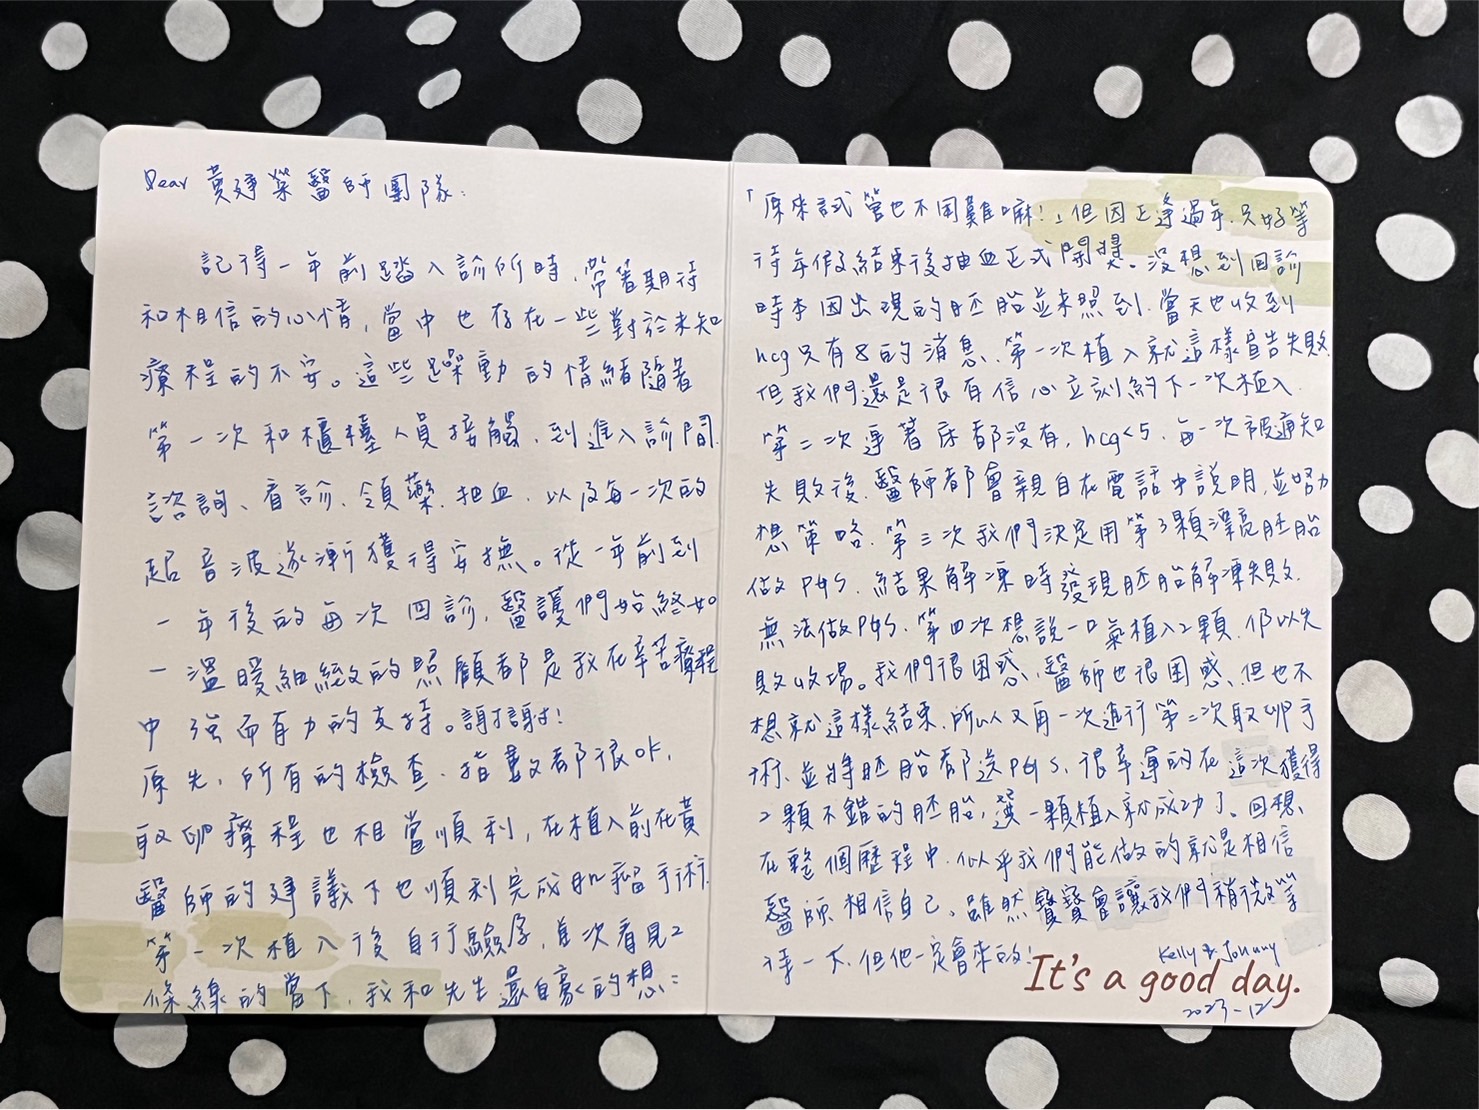 Dear 黃建榮醫師團隊:
記得一年前踏入診所時、帶著期待
和相信的心情,當中也存在一些對於未知
療程的不安。這些躁動的情緒隨著
第一次和櫃檯人員接觸、到進入診間
諮詢、看診、領藥、抽血、以及每一次的
超音波逐漸獲得安撫。從一年前到
一年後的每次回診,醫護們始終如
一溫暖細緻的照顧都是我在辛苦療程
中強而有力的支持。謝謝!
原先,所有的檢查、指數都很OK,
取卵療程也相當順利,在植入前在黃
醫師的建議下也順利完成肌瘤手術,
第一次植入後自行驗孕,首次看見2
條線的當下,我和先生還自豪的想:
「原來試管也不困難嘛!」但因正逢過年、只好等
待年假結束後抽血正式開獎。沒想到回診
時本因出現的胚胎並未照到、當天也收到
hcg只有8的消息、第一次植入就這樣宣告失敗、
但我們還是很有信心立刻約下一次植入.
第二次連著床都沒有,hcg<5、每一次被通知
失敗後,醫師都會親自在電話中說明,並努力
想策略、第三次我們決定用第3顆漂亮胚胎
做PGS、結果解凍時發現胚胎解凍失敗、
無法做PGS、第四次想說一口氣植入2顆、仍以失
敗收場。我們很困惑、醫師也很困惑、但也不
想就這樣結束、所以又再一次進行第二次取卵手
術、並將胚胎都送PGS、很幸運的在這次獲得
2顆不錯的胚胎,選一顆植入就成功了。回想、
在整個歷程中、似乎我們能做的就是相信
醫師、相信自己。雖然寶寶會讓我們稍微等
待一下、但他一定會來的!
Kelly & Johnny
It's a good day.
2023-12